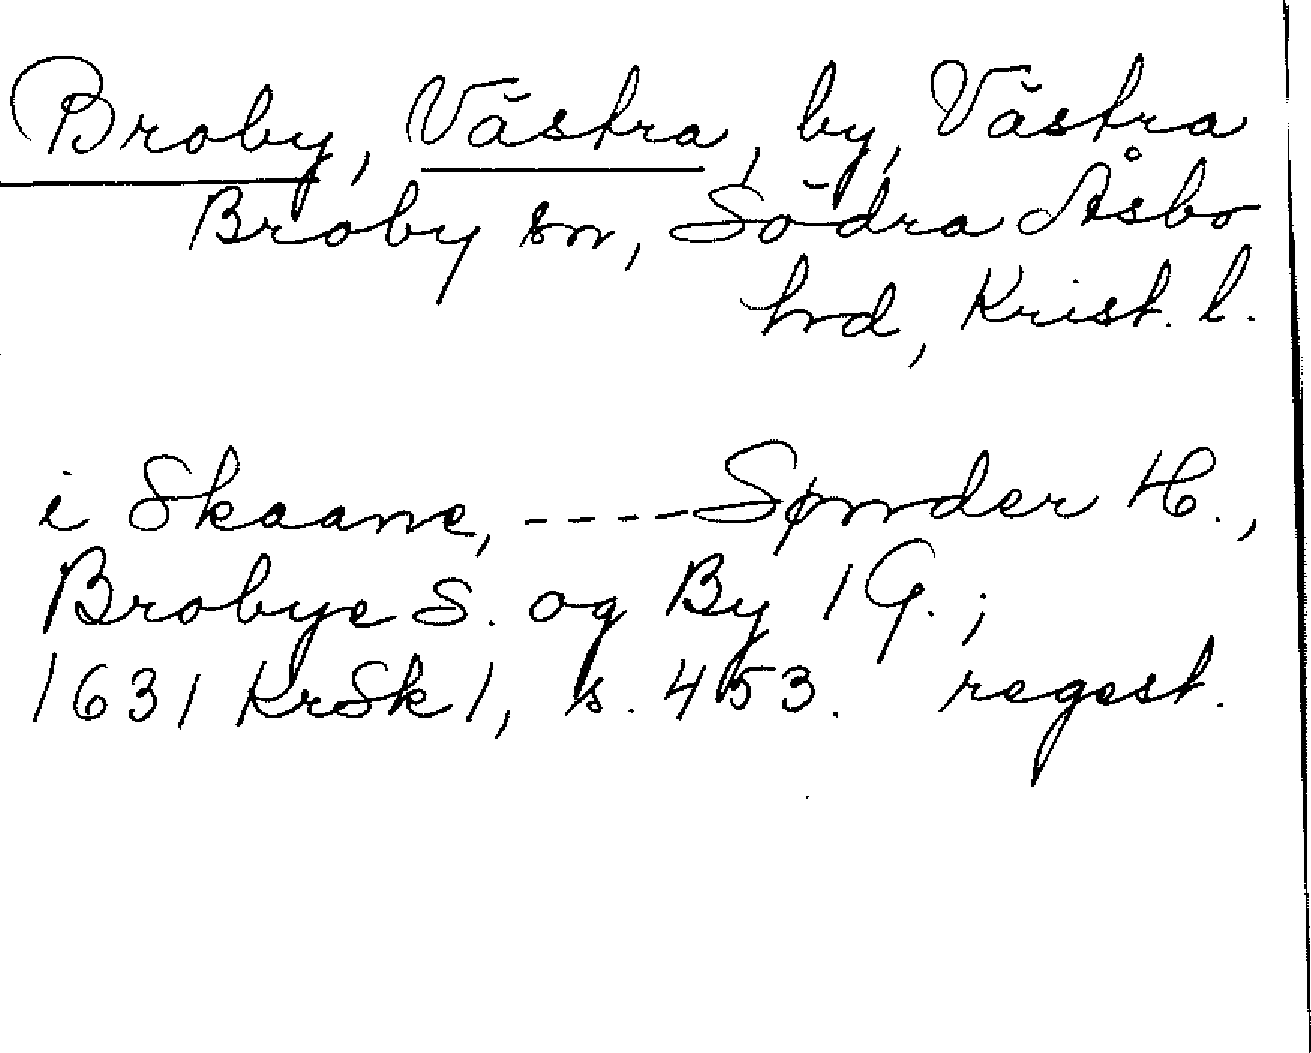 Broby, Västra, by, Västra
Broby sn, Södra Åsbo
hrd, Krist. l.
i Skaane, ----- Sønder H.,
Brobye S. og By 1 G.;
1631 KrSk 1, s. 453. regest.